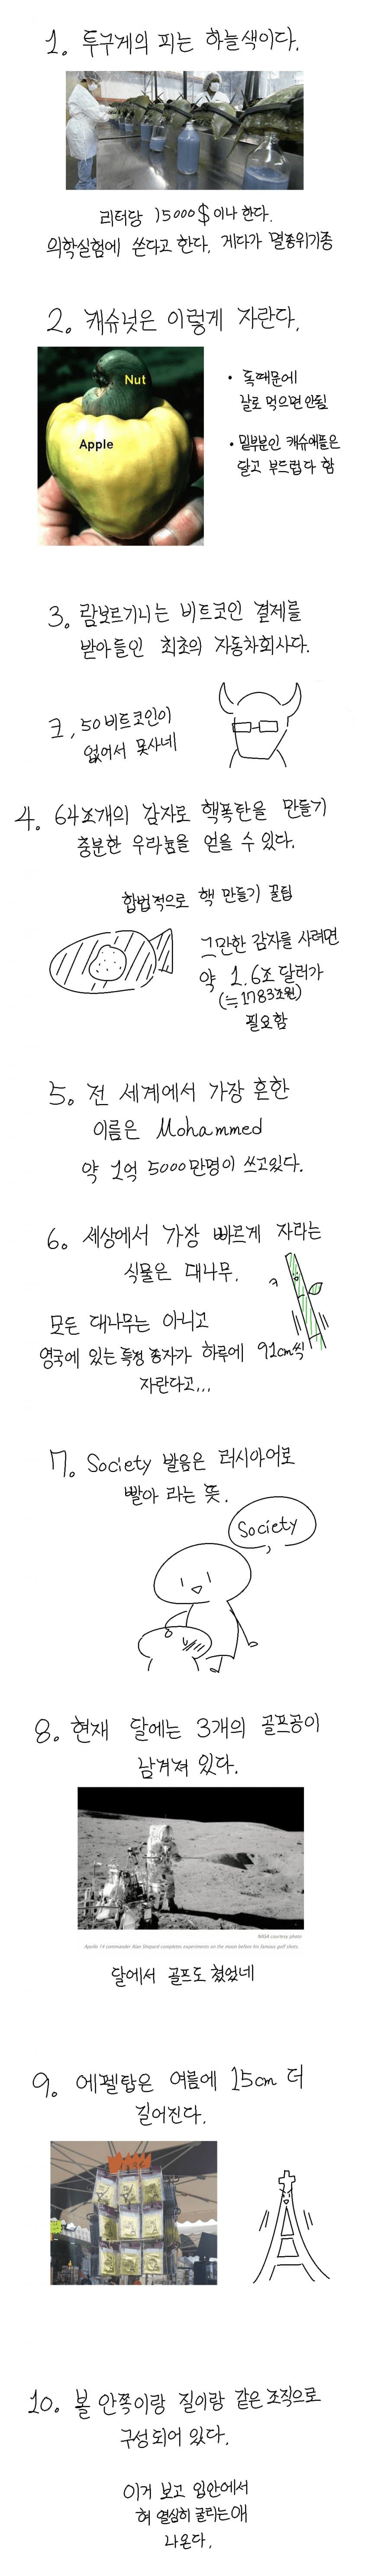 1. 투구게의 피는 하늘색이다.
리터당 15000$이나 한다.
의학실험에 쓴다고 한다, 게다가 멸종위기종
2. 캐슈넛은 이렇게 자란다.
Nut
Apple
• 독때문에
날로 먹으면 안됨
• 밑부분인 캐슈애플은
달고 부드럽다 함
3. 람보르기니는 비트코인 결제를
받아들인 최초의 자동차회사다.
크, 50비트코인이
없어서 못사네
4. 64조개의 감자로 핵폭탄을 만들기
충분한 우라늄을 얻을 수 있다.
합법적으로 핵 만들기 꿀팁
그만한 감자를 사려면
약 1.6조 달러가
(≒1783조원)
필요함
5. 전 세계에서 가장 흔한
이름은 Mohammed
약 1억 5000만명이 쓰고있다.
6. 세상에서 가장 빠르게 자라는
식물은 대나무.
모든 대나무는 아니고
영국에 있는 특정 종자가 하루에 91cm씩
자란다고...
7. Society 발음은 러시아어로
빨아 라는 뜻.
Society
8. 현재 달에는 3개의 골프공이
남겨져 있다.
NASA courtesy photo
Apollo 14 commander Alan Shepard completes experiments on the moon before his famous golf shots.
달에서 골프도 쳤었네
9. 에펠탑은 여름에 15cm 더
길어진다.
10. 볼 안쪽이랑 질이랑 같은 조직으로
구성되어 있다.
이거 보고 입안에서
혀 열심히 굴리는애
나온다.